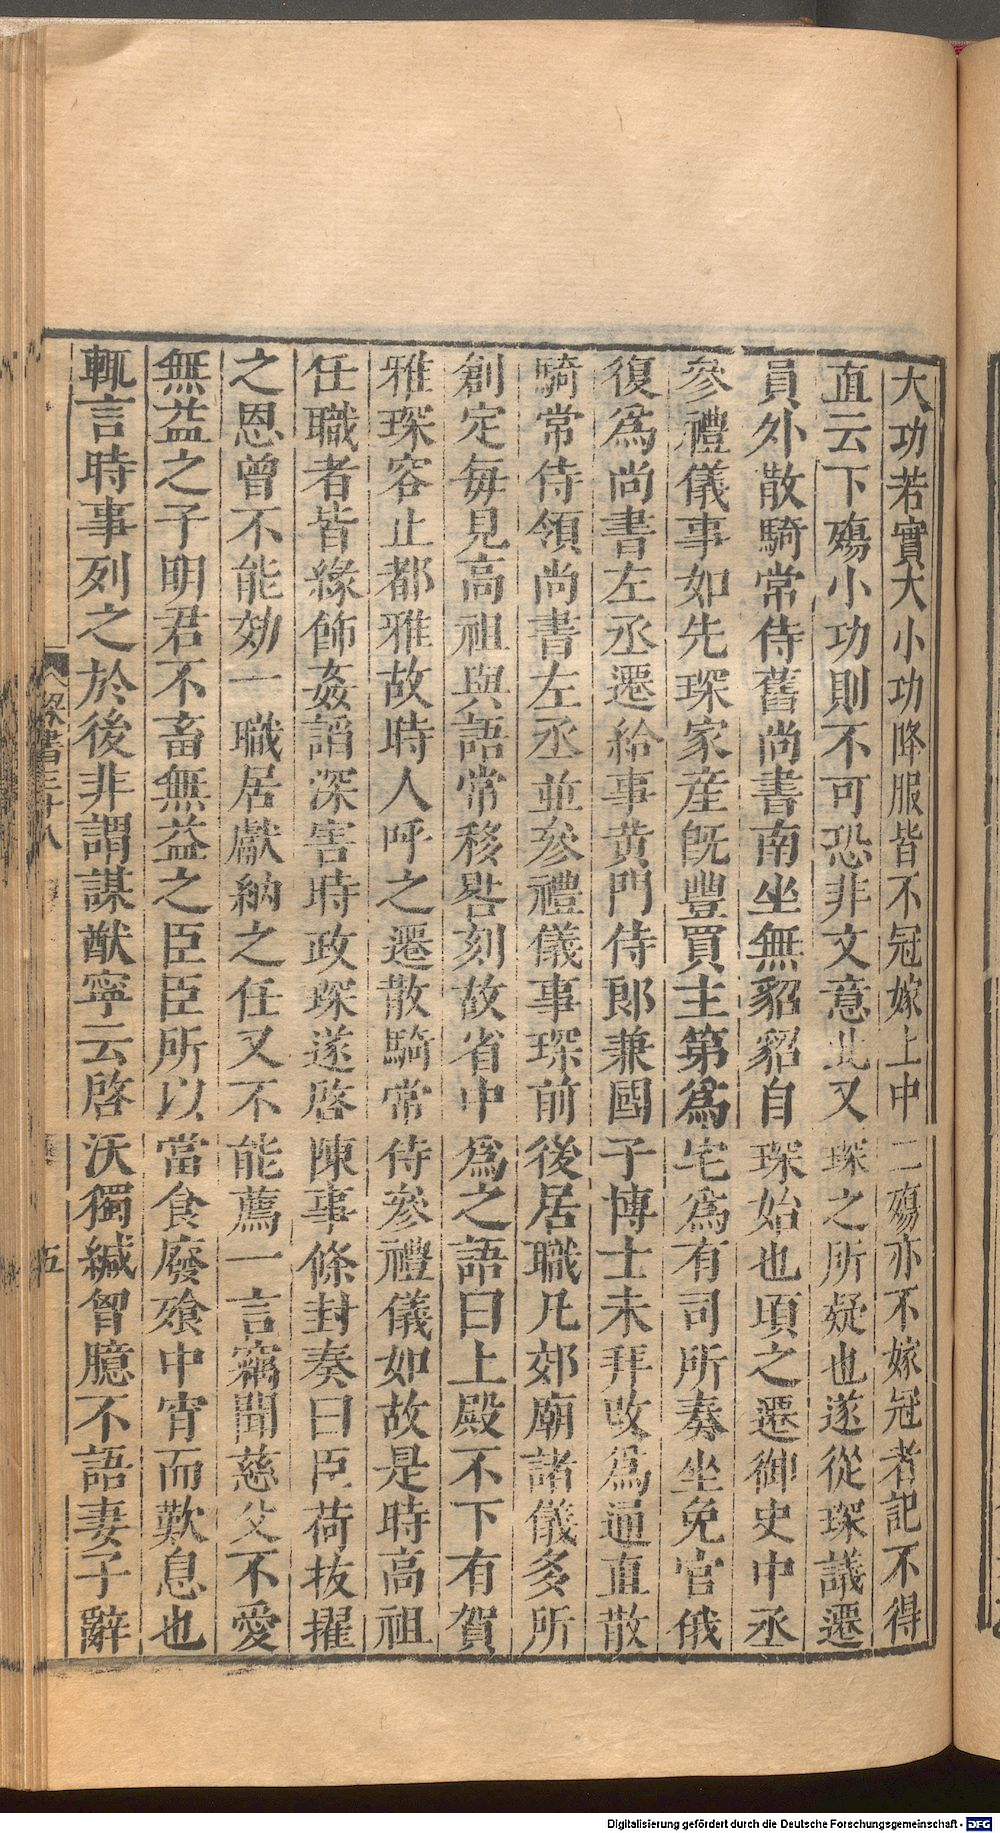 大功若實大小功降服皆不冠嫁上中二殤亦不嫁冠者記不得
直云下殤小功則不可恐非文意此又琛之所疑也遂從琛議遷
員外散騎常侍舊尚書南坐無貂貂自琛始也項之遷御史中丞
參禮儀事如先琛家產既豐買主第爲宅爲有司所奏坐免官俄
復爲尚書左丞遷給事黃門侍郎兼國子博士未拜改爲通直散
騎常侍領尚書左丞並參禮儀事琛前後居職凡郊廟諸儀多所
創定每見高祖與語常移晷刻故省中爲之語曰上殿不下有賀
雅琛容止都雅故時人呼之遷散騎常侍參禮儀如故是時高祖
任職者皆緣飾姦諂深害時政琛遂啓陳事條封奏曰臣荷拔擢
之恩曾不能効一職居獻納之任又不能薦一言竊聞慈父不愛
無益之子明君不畜無益之臣臣所以當食廢飧中宵而歎息也
輒言時事列之於後非謂謀猷寧云啓沃獨緘智臆不語妻子辭
梁書三十八 五
Digitalisierung gefördert durch die Deutsche Forschungsgemeinschaft - DFG